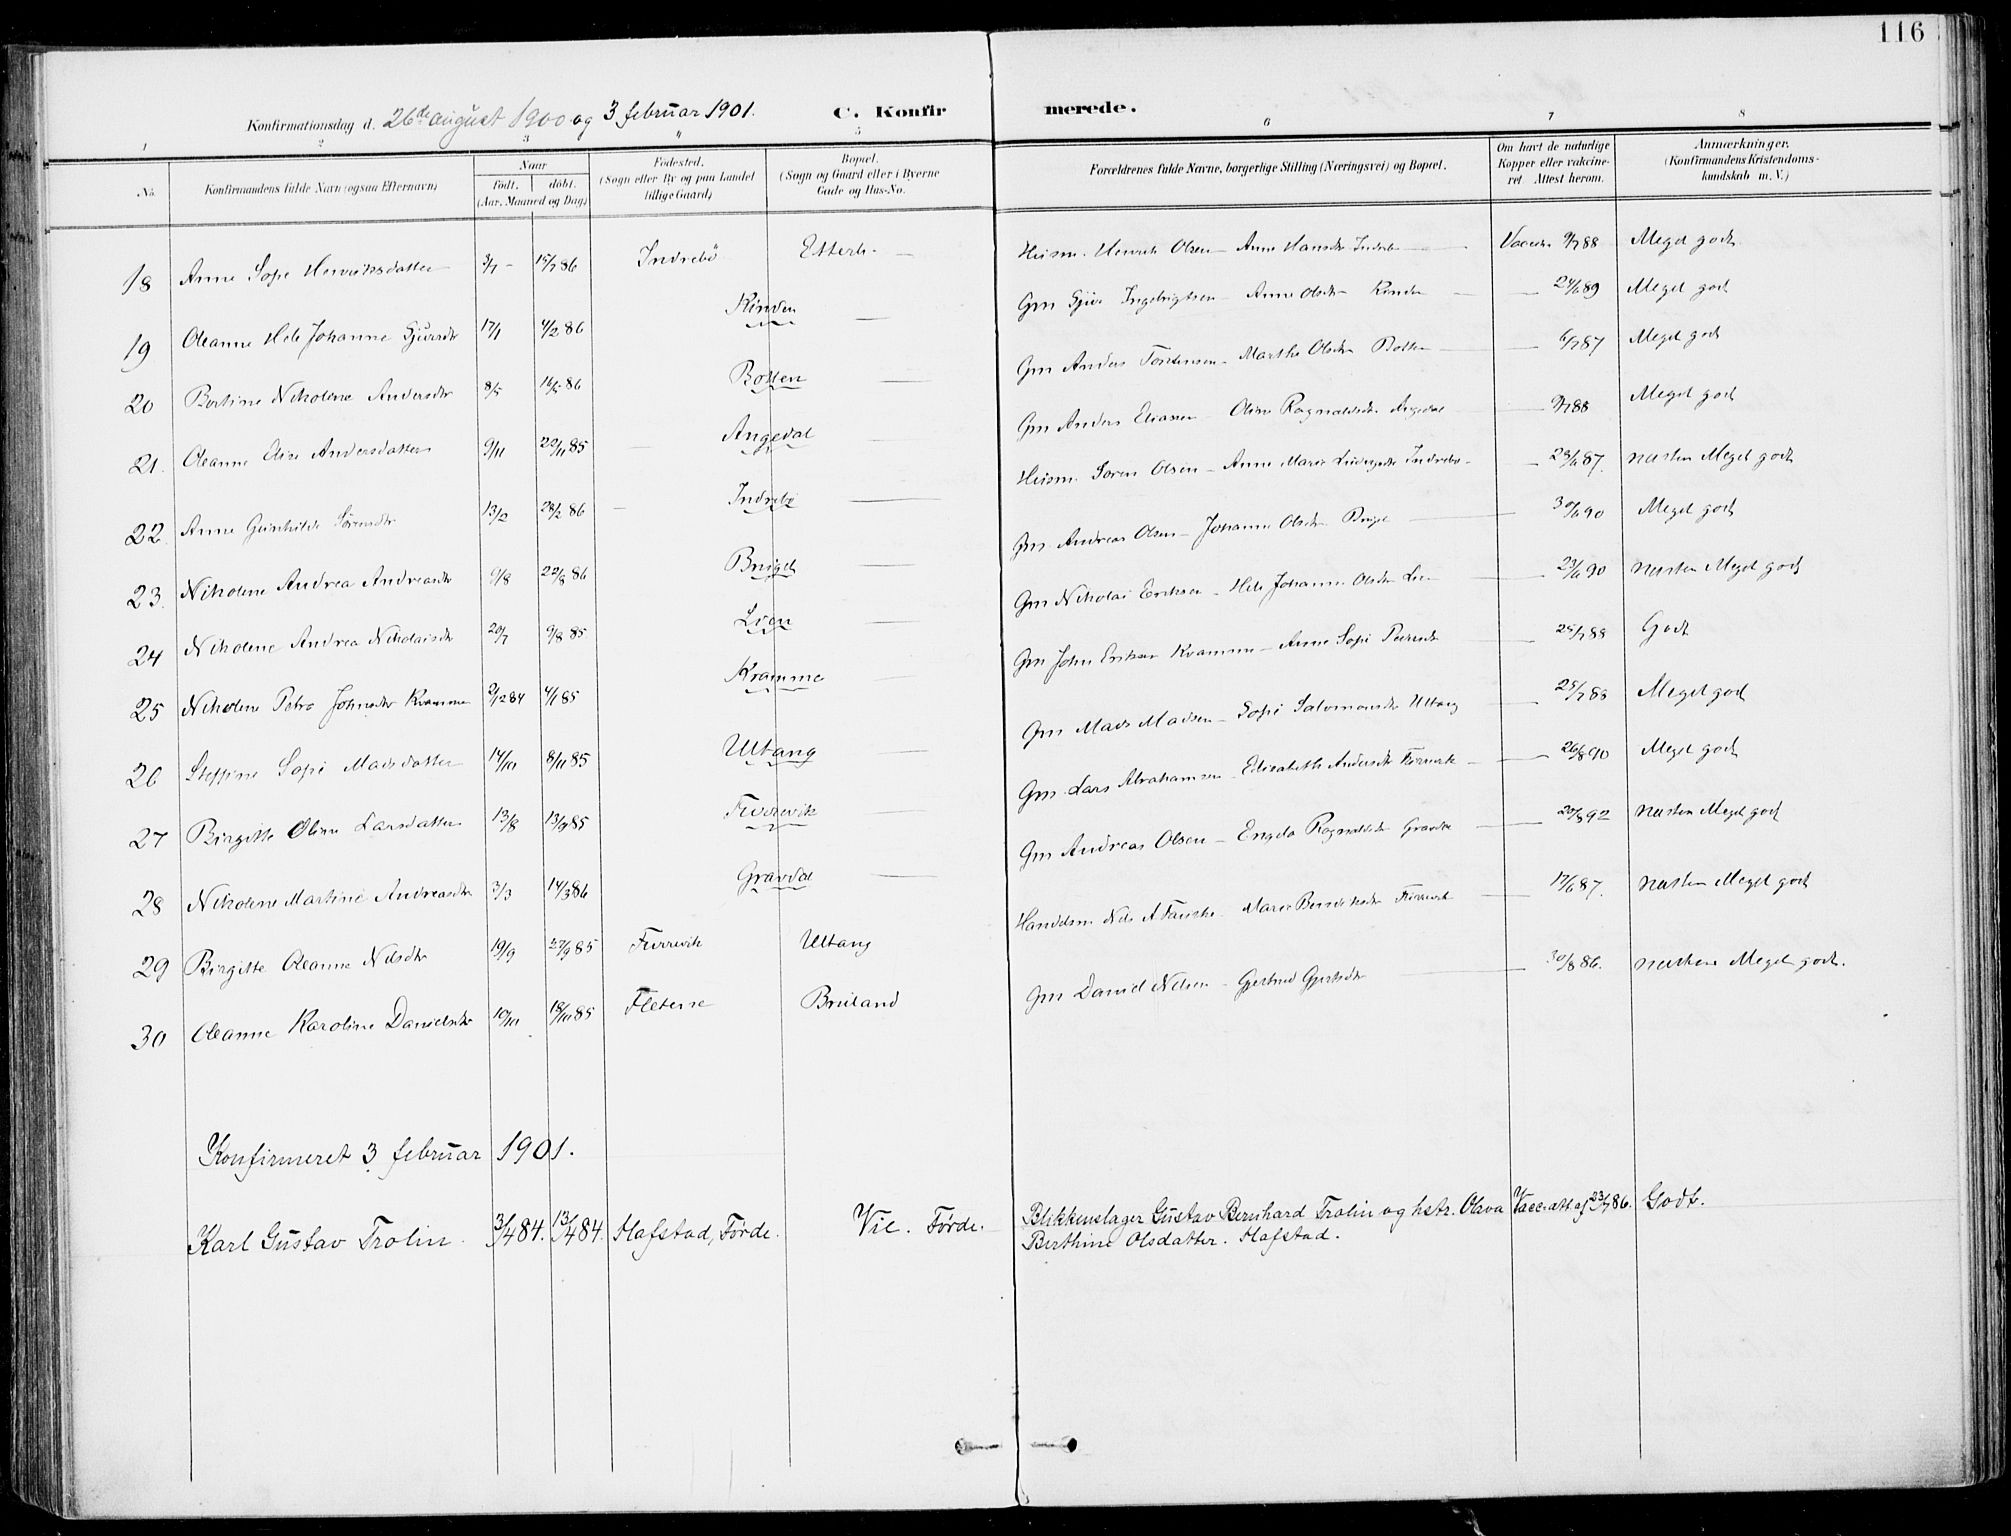 116
Konfirmationsdag d. 26de august 1900 og 3 februar 1901. C. Konfirmerede.
1 2 3 " 5 6 7 8
No. Konfirmandens fulde Navn (ogsaa Efternavn) Naar født. døbt. (Aar, Maaned og Dag) Fødested. (Sogn eller By og paa Landet tillige Gaard) Bopæl. (Sogn og Gaard eller i Byerne Gade og Hus-No. Forældrenes fulde Navne, borgerlige Stilling (Næringsvei) og Bopæl. Om havt de naturlige Kopper eller vakcineret. Attest herom. Anmærkninger. (Konfirmandens Kristendomskundskab m. V.)
18 Anne Sofie Henriksdatter 3/7 - 15/7 86 Indrebö Husm. Henrik Olsen - Anne Hansdtr Indrebö Vaccin. 9/7 88 Meget godt
19 Oleanne Johanne 17/1 4/2 86 Kinden — Gm Ingebrigtsen - Anne Olsdtr Kinden — 24/6 89 Meget godt
20 Bertine Nikoline Andersdtr 8/5 16/5 86 Botten — Gm Anders Torstensen - Marthe Olsdtr Botten — 6/7 87 Meget godt
21. Oleanne Elise Andersdatter 9/11 22/11 85 — Angedal — Gm Anders Eliassen - Oline Ragnvaldsdtr Angedal — 9/7 88 Meget godt
22. Anne Gunhilde Sörensdtr 13/2 28/2 86 - Indrebö — Husm. Søren Olsen - Anne Marie Indrebö — 28/6 87. næsten Meget godt
23. Nikoline Andrea Andreasdtr 9/8 22/8 86 — Gm. Andreas Olsen - Johanne Olsdtr — 30/6 90 Meget godt
24 Nikoline Andrea Nikolaisdtr 20/7 9/8 85 Lien — Gm Nikolai Eriksen - Johanne Olsdtr — 23/6 90 næsten Meget godt
25 Nikoline Petra Johnsdtr Kvamme 2/12 84 4/1 85 Kvamme — Gm John Eriksen Kvamme - Anne Sofie Peersdtr — 25/7 88 Godt
26 Steffine Sofie Madsdatter 14/10 8/11 85 Ultang — Gm Mads Madsen - Sofie Salomonsdtr Ultang — 25/7 88 Meget godt
27 Birgitte Oline Larsdatter 13/8 13/9 85 Furrevik — Gm Lars Abrahamsen - Elisabeth Andersdtr Furrevik — 26/8 90 Meget godt
28 Nikoline Martine Andreasdtr 3/3 14/3 86 Gravdal — Gm Andreas Olsen - Ragnvaldsdtr Gravdal — 20/8 92 næsten Meget godt
29 Birgitte Oleanne Nilsdtr 19/9 27/9 85 Furrevik Ultang Handelsm. Nils A - Marie Furrevik — 17/6 87. næsten Meget godt
30 Oleanne Karoline Danielsdtr 10/10 18/10 85 Fleterne Bruland Gm Daniel Nilsen - Gjertrud — 30/8 86. næsten Meget godt.
Konfirmeret 3 februar 1901.
Karl Gustav Trolin. 3/4 84. 13/4 84. Hafstad, Førde. Vie. Førde. Blikkenslager Gustav Bernhard Trolin og hstr. Olava Berthine Olsdatter. Hafstad. Vacc.att af 23/7 86. Godt.